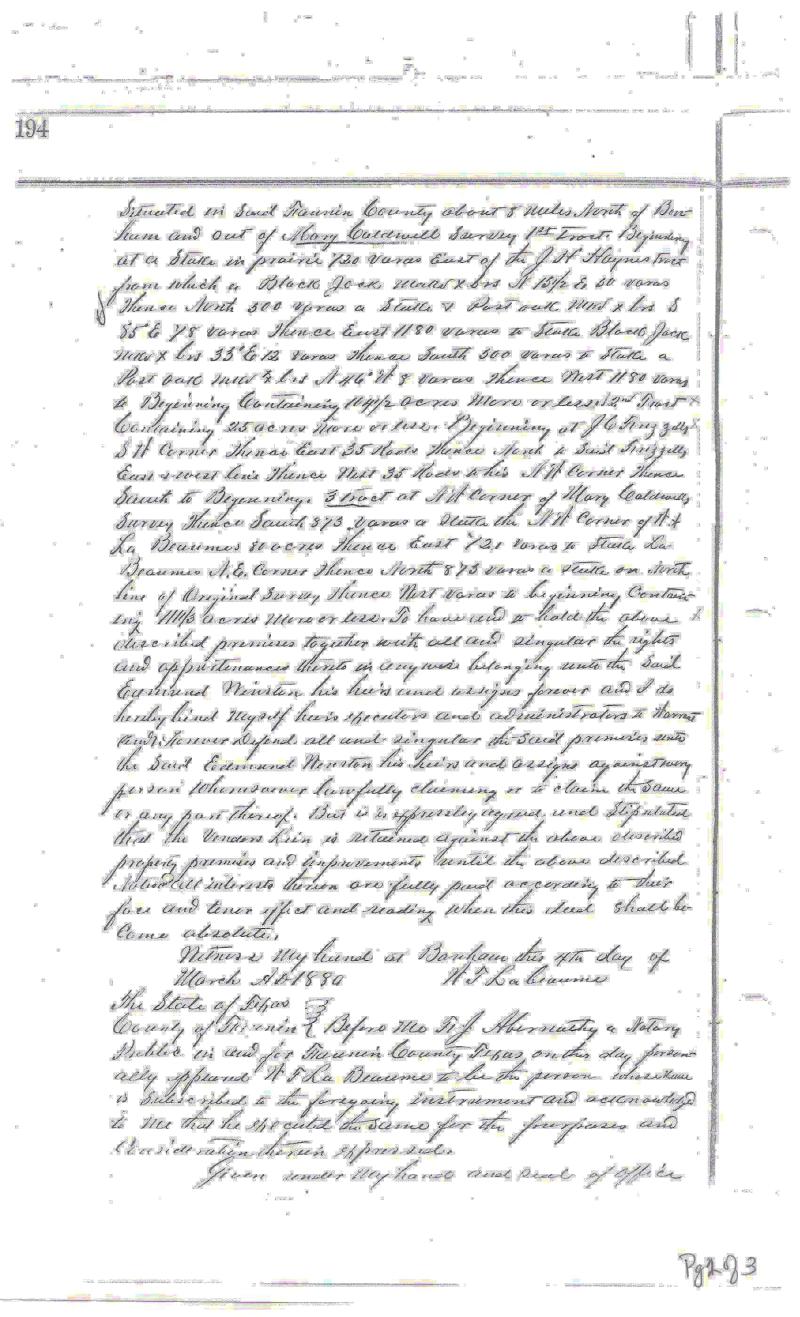 194
Situated in Said Fannin County about 8 miles North of Bon-
ham and out of Mary Caldwell Survey 1st Tract. Beginning
at a Stake in prairie 720 varas East of the J. H. Haynes tract
from which a Black Jack Mkd X brs N 15 1/2 E 30 varas
Thence North 500 varas a Stake & Post oak Mkd X brs S
85° E 78 varas Thence East 1180 varas to Stake Black Jack
Mkd X brs 33° E 12 varas Thence South 500 varas to Stake a
Post oak Mkd X brs N 46° W 8 varas Thence West 1180 varas
to Beginning Containing 104 1/2 acres More or less. 2nd Tract
Containing 25 acres More or less. Beginning at J C
S W Corner Thence East 35 Rods Thence North to Said
East & west line Thence West 35 Rods to his N W Corner Thence
South to Beginning. 3 tract at N W Corner of Mary Caldwells
Survey Thence South 873 varas a Stake the N W Corner of W F
La Beaumes 80 acres Thence East 720 varas to Stake La
Beaumes N. E. Corner Thence North 873 varas a Stake on North
line of Original Survey Thence West varas to beginning Contain-
ing 111 1/3 acres More or less. To have and to hold the above
described premises together with all and singular the rights
and appertenances thereto in anywise belonging unto the Said
Edmund Winston his heirs and assigns forever and I do
hereby bind Myself heirs executors and administrators to Warrant
and forever Defend all and singular the Said premises unto
the Said Edmund Winston his heirs and assigns against every
person Whomsoever lawfully claiming or to claim the Same
or any part thereof. But is is expressley agreed and Stipulated
that the Vendors Lien is retained against the above described
property premises and improvements until the above described
Notes all interests thereon are fully paid according to their
face and tenor effect and reading When this deed Shall be-
Come absolute.
Witness My hand at Bonham this 4th day of
March A D 1880 W F La beaume
The State of Texas
County of Fannin } Before Me F. J. Abernathy a Notary
Public in and for Fannin County Texas on this day person-
ally appeared W F La Beaume to be the person whose name
is Subscribed to the foregoing instrument and acknowledged
to Me that he executed the Same for the purposes and
Consideration therein expressed.
Given under My hand and Seal of office
Pg 2 of 3